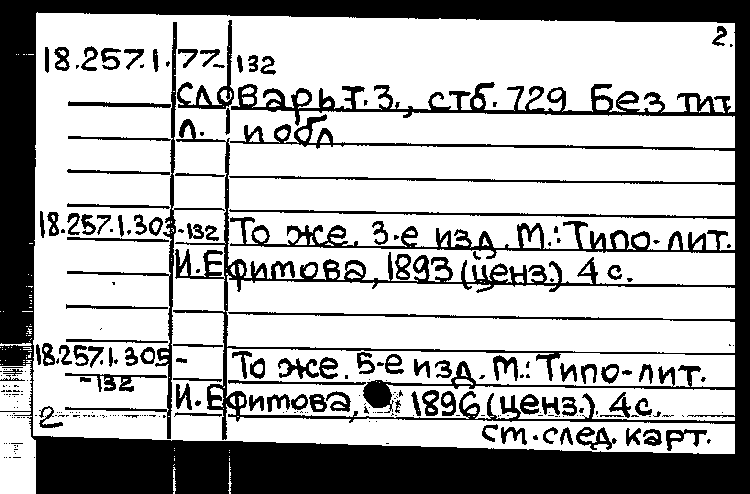 2.
18.257.1.77-132
словарь т. 3., стб. 729 Без тит
л. и обл.
18.257.1.303-132 То же. 3-е изд. М.: Типо-лит.
И. Ефитова, 1893 (ценз.). 4 с.
18.257.1.305- То же. 5-е изд. М.: Типо-лит.
-132
И. Ефитова, 1896 (ценз.). 4 с.
2 ст. след. карт.